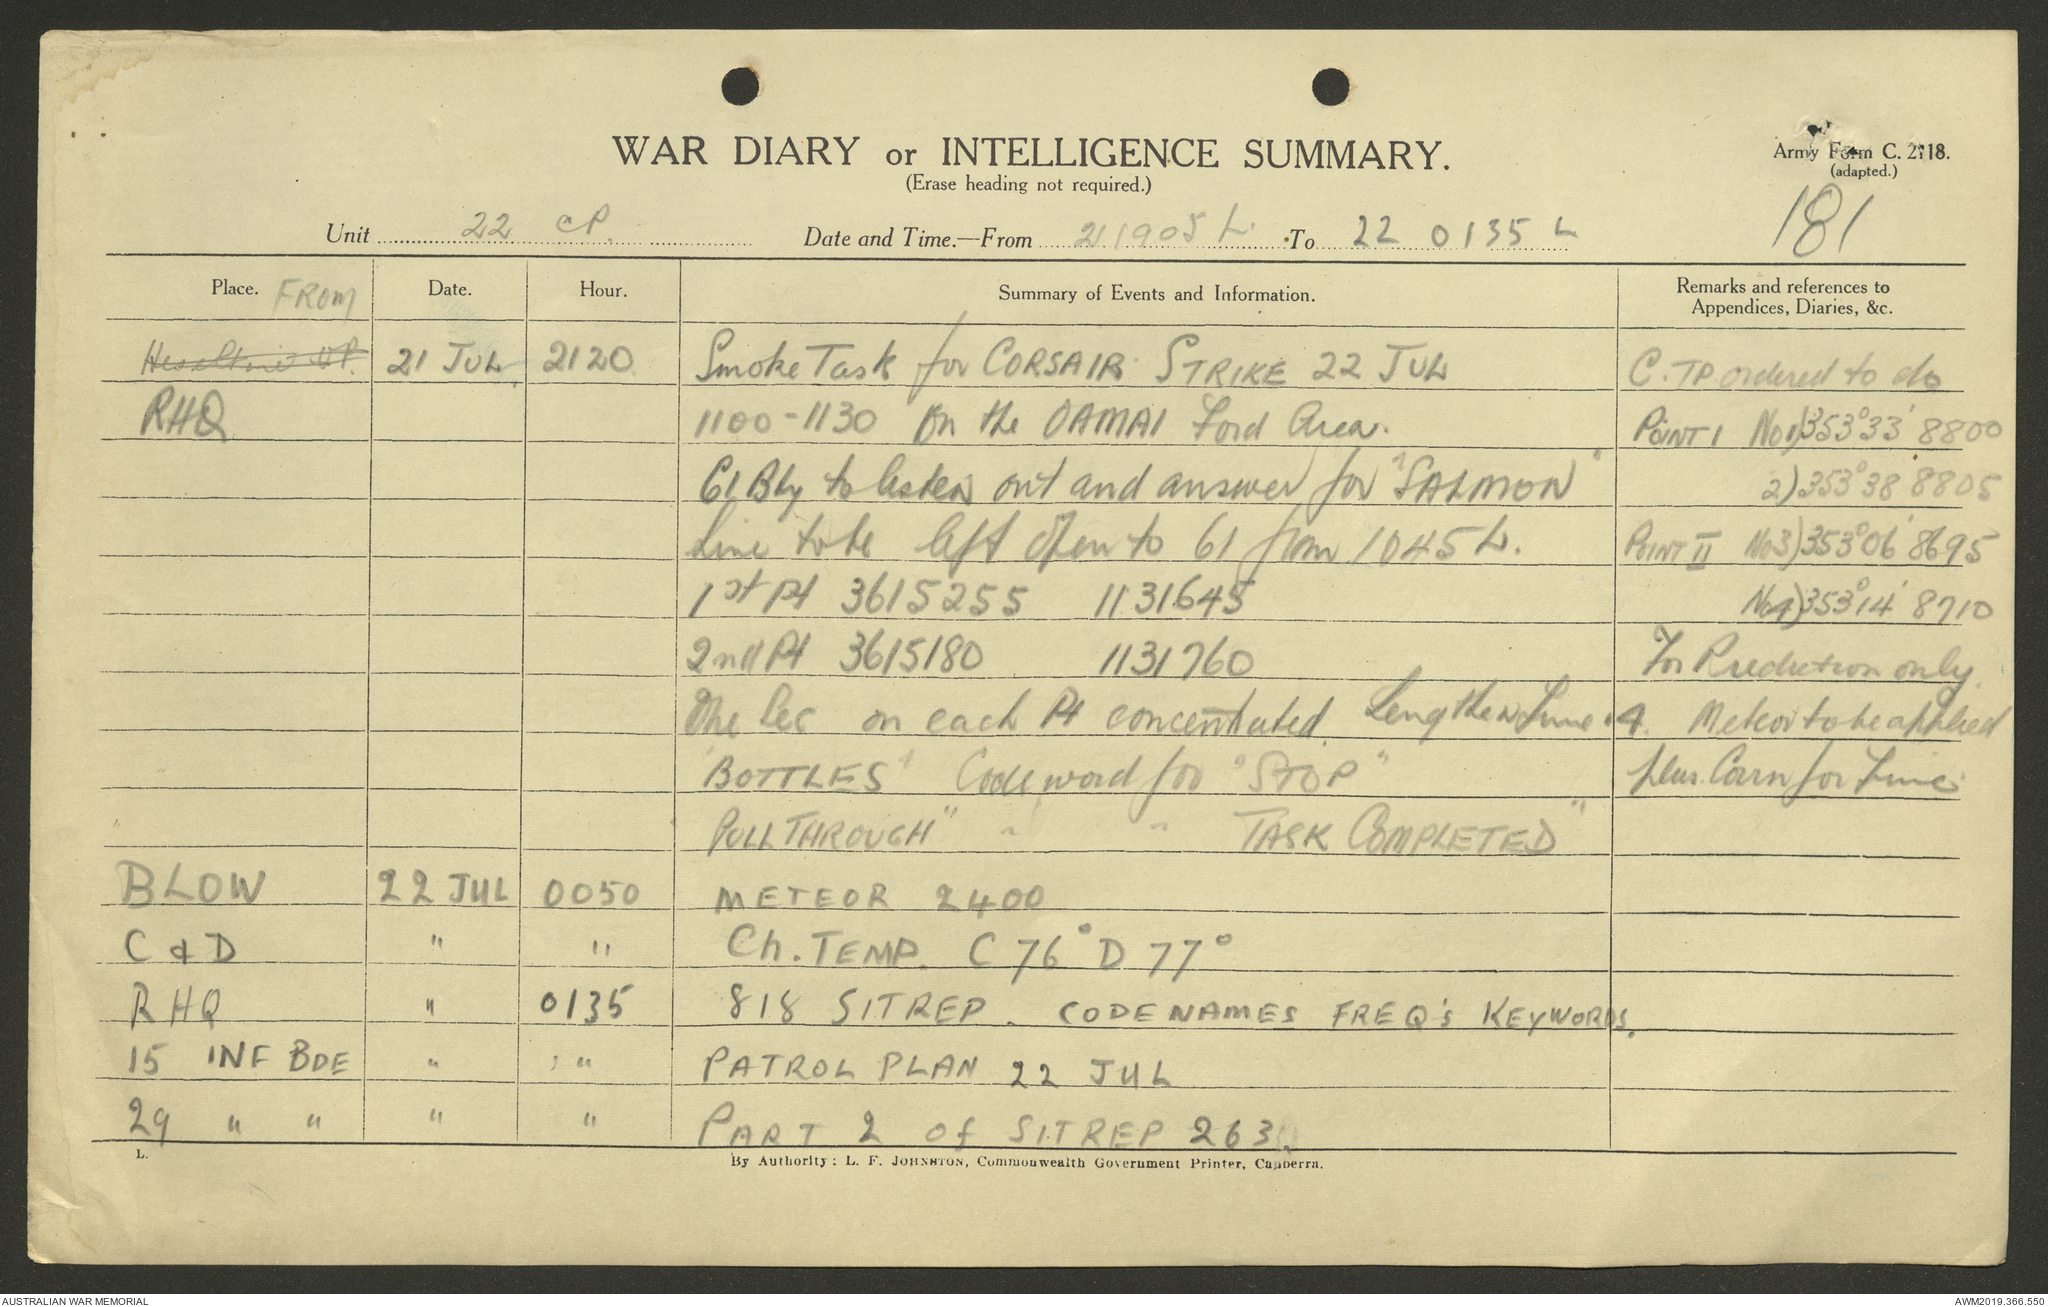 WAR DIARY or INTELLIGENCE SUMMARY.
(Erase heading not required.)
Army Form C. 2118.
(adapted.)
181
Unit 22 CP. Date and Time.—From 211905 L. To 22 0135 L
Place. FROM Date. Hour. Summary of Events and Information. Remarks and references to Appendices, Diaries, &c.
21 JUL 2120 Smoke Task for CORSAIR STRIKE 22 JUL C. TP ordered to do
RHQ 1100-1130 On the OAMAI Ford Area. POINT 1 No 1) 353°33' 8800
61 Bty to listen out and answer for "SALMON" 2) 353°38' 8805
Line to be left open to 61 from 1045 L. POINT II No 3) 353°06' 8695
1st Pt 3615255 1131645 No 4) 353°14' 8710
2nd Pt 3615180 1131760 For Prediction only.
One Sec on each Pt concentrated. Lengthen Fuze .4. Meteor to be applied
"BOTTLES" Code word for "STOP" plus Corrn for Fuze
PULLTHROUGH" " " TASK COMPLETED"
BLOW 22 JUL 0050 METEOR 2400
C & D " " Ch. TEMP. C 76° D 77°
RHQ " 0135 818 SITREP. CODENAMES FREQ's KEYWORDS.
15 INF BDE " " PATROL PLAN 22 JUL
29 " " " " PART 2 of SITREP 263
L.
By Authority: L. F. JOHNSTON, Commonwealth Government Printer, Canberra.
AUSTRALIAN WAR MEMORIAL
AWM2019.366.550